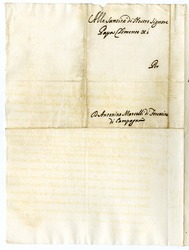 Alla Santità di Nostro Signore
Papa Clemente XI
Per
D. Antonino Marcelli di Ferentino
di Campagna